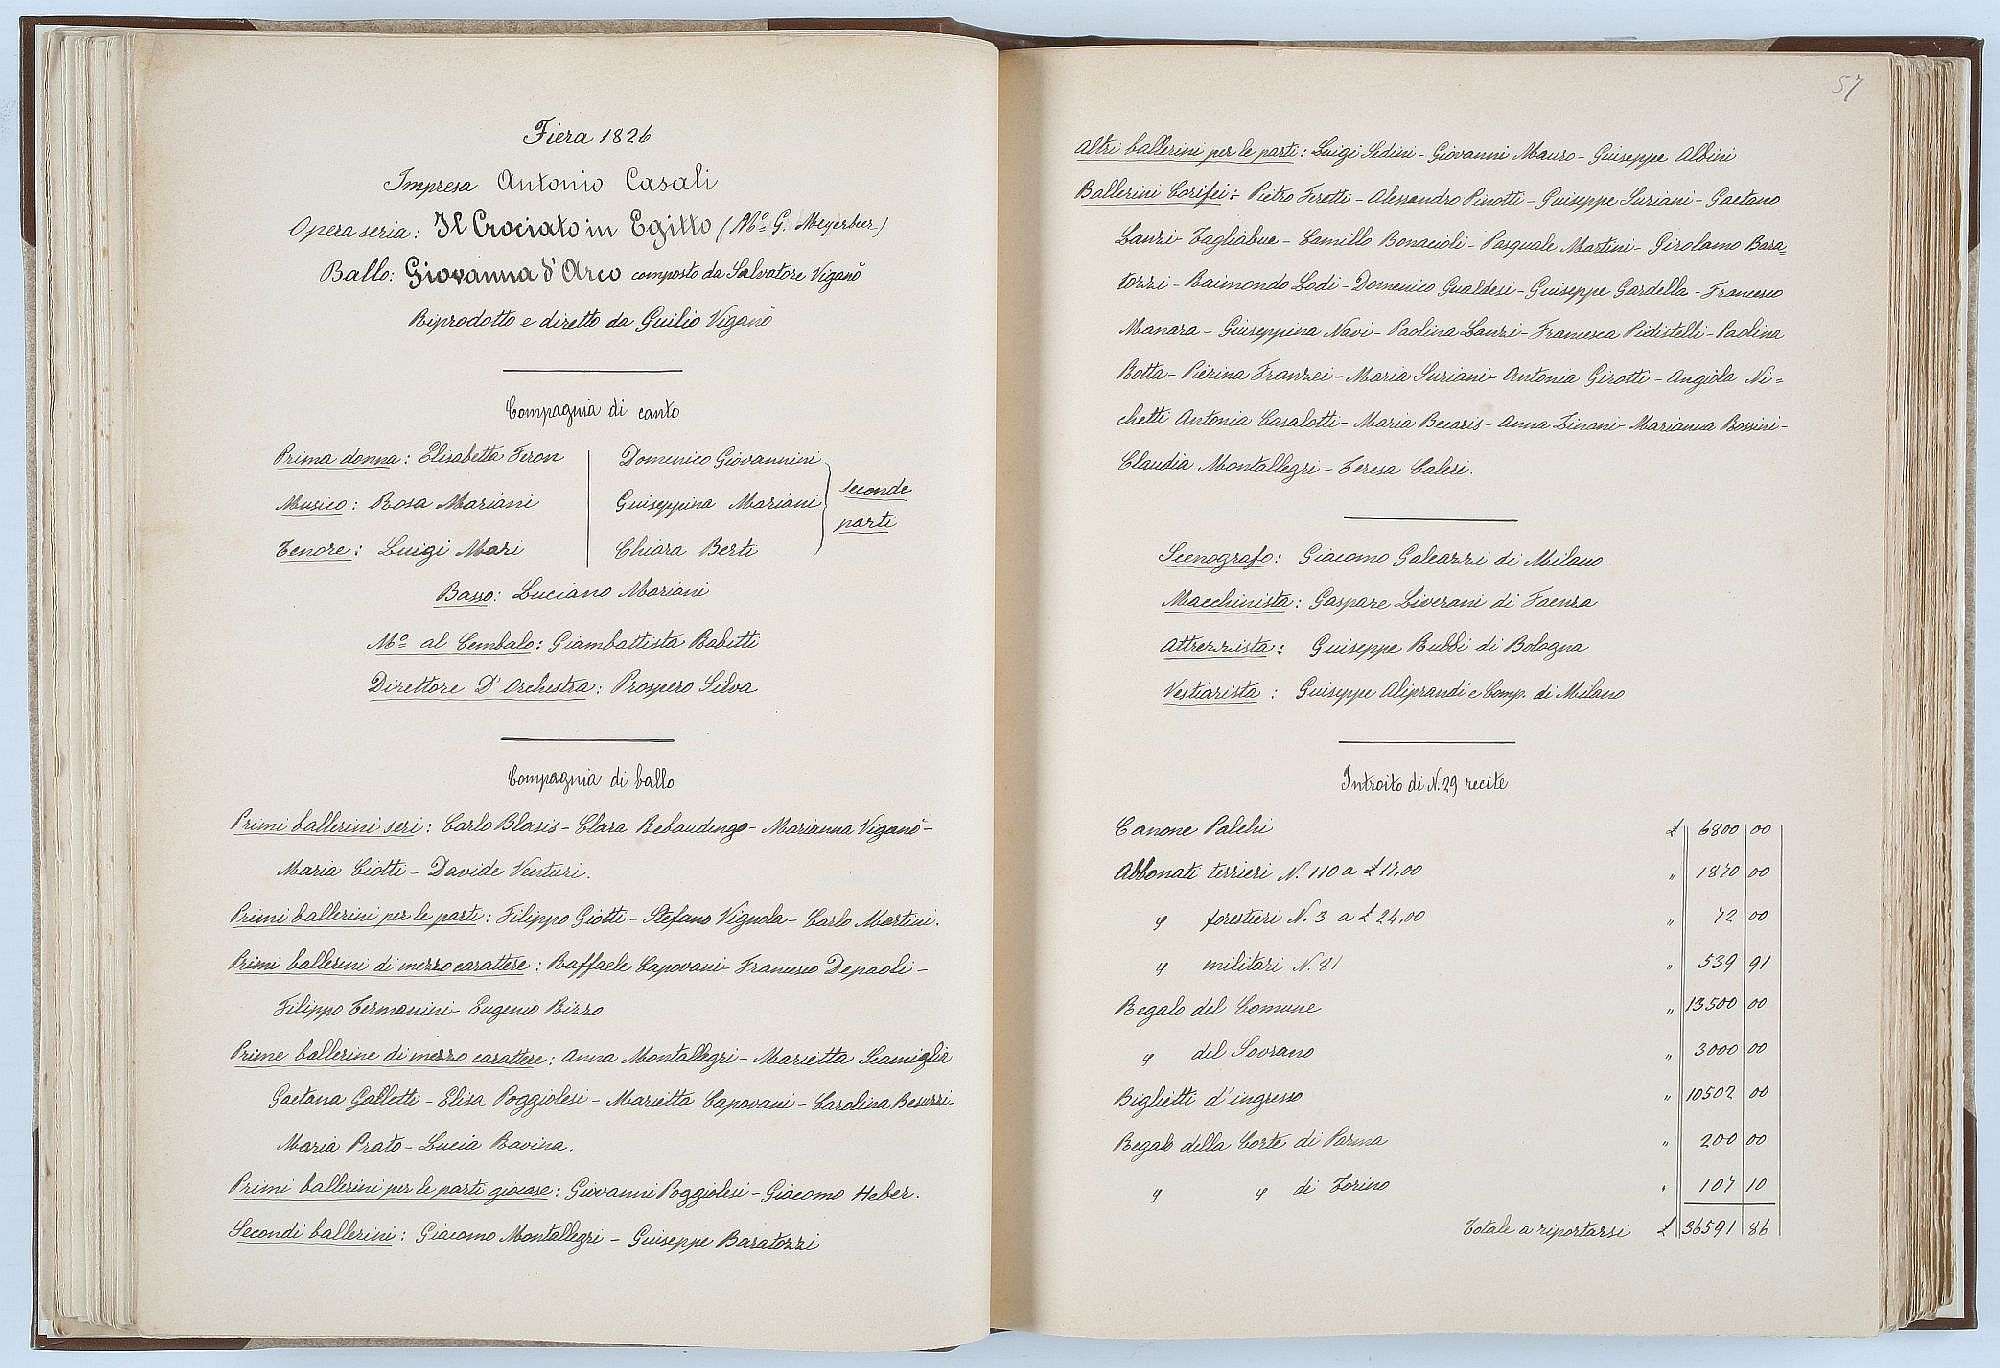 Fiera 1826
Impresa Antonio Casali
Opera seria: Il Crociato in Egitto (Mº G. Meyerber)
Ballo: Giovanna d'Arco composto da Salvatore Viganò
Riprodotto e diretto da Guilio Viganò
Compagnia di canto
Prima donna: Elisabetta Feron
Musico: Rosa Mariani
Tenore: Luigi Mari
Domenico Giovannini
Guiseppina Mariani
Chiara Berti
Seconde
parti
Basso: Luciano Mariani
Mº al Cembalo: Giambattista Rabitti
Direttore D'Orchestra: Prospero Silva
Compagnia di ballo
Primi ballerini seri: Carlo Blasis - Clara Rebaudengo - Marianna Viganò -
Maria Ciotti - Davide Venturi.
Primi ballerini per le parti: Filippo Giotti - Stefano Vignola - Carlo Martini.
Primi ballerini di mezzo carattere: Raffaele Capovani - Francesco Depaoli -
Filippo Termanini - Eugenio Rizzo
Prime ballerine di mezzo carattere: Anna Montallegri - Marietta Scamiglia
Gaetana Galletti - Elisa Poggiolesi - Marietta Capovani - Carolina Besuzzi.
Maria Prato - Lucia Ravina.
Primi ballerini per le parti giocose: Giovanni Poggiolesi - Giacomo Heber.
Secondi ballerini: Giacomo Montallegri - Guiseppe Baratozzi
57
Altri ballerini per le parti: Luigi Sedini - Giovanni Mauro - Guiseppe Albini
Ballerini Corifei: Pietro Feretti - Alessandro Pinotti - Guiseppe Suriani - Gaetano
Lanzi - Tagliabue - Camillo Bonacioli - Pasquale Martini - Girolamo Bara=
tozzi - Raimondo Lodi - Domenico Gualdesi - Guiseppe Gardella - Francesco
Manara - Guiseppina Navi - Paolina Lanzi - Francesca Pidistelli - Paolina
Botta - Pierina Franzei - Maria Suriani - Antonia Girotti - Angiola Ni=
chetti Antonia Casalotti - Maria Becaris - Anna Zinani - Marianna Rossini -
Claudia Montallegri - Teresa Calesi.
Scenografo: Giacomo Galeazzi di Milano
Macchinista: Gaspare Liverani di Faenza
Attrezzista: Guiseppe Rubbi di Bologna
Vestiarista: Guiseppe Aliprandi e Comp. di Milano
Introito di N. 29 recite
Canone Palchi £ 6800 00
Abbonati terrieri N. 110 a £ 17.00 " 1870 00
" forestieri N. 3 a £ 24.00 " 72 00
" militari N. 81 " 539 91
Regalo del Comune " 13500 00
" del Sovrano " 3000 00
Biglietti d'ingresso " 10502 00
Regalo della Corte di Parma " 200 00
" " di Torino " 107 10
Totale a riportarsi £ 36591 86